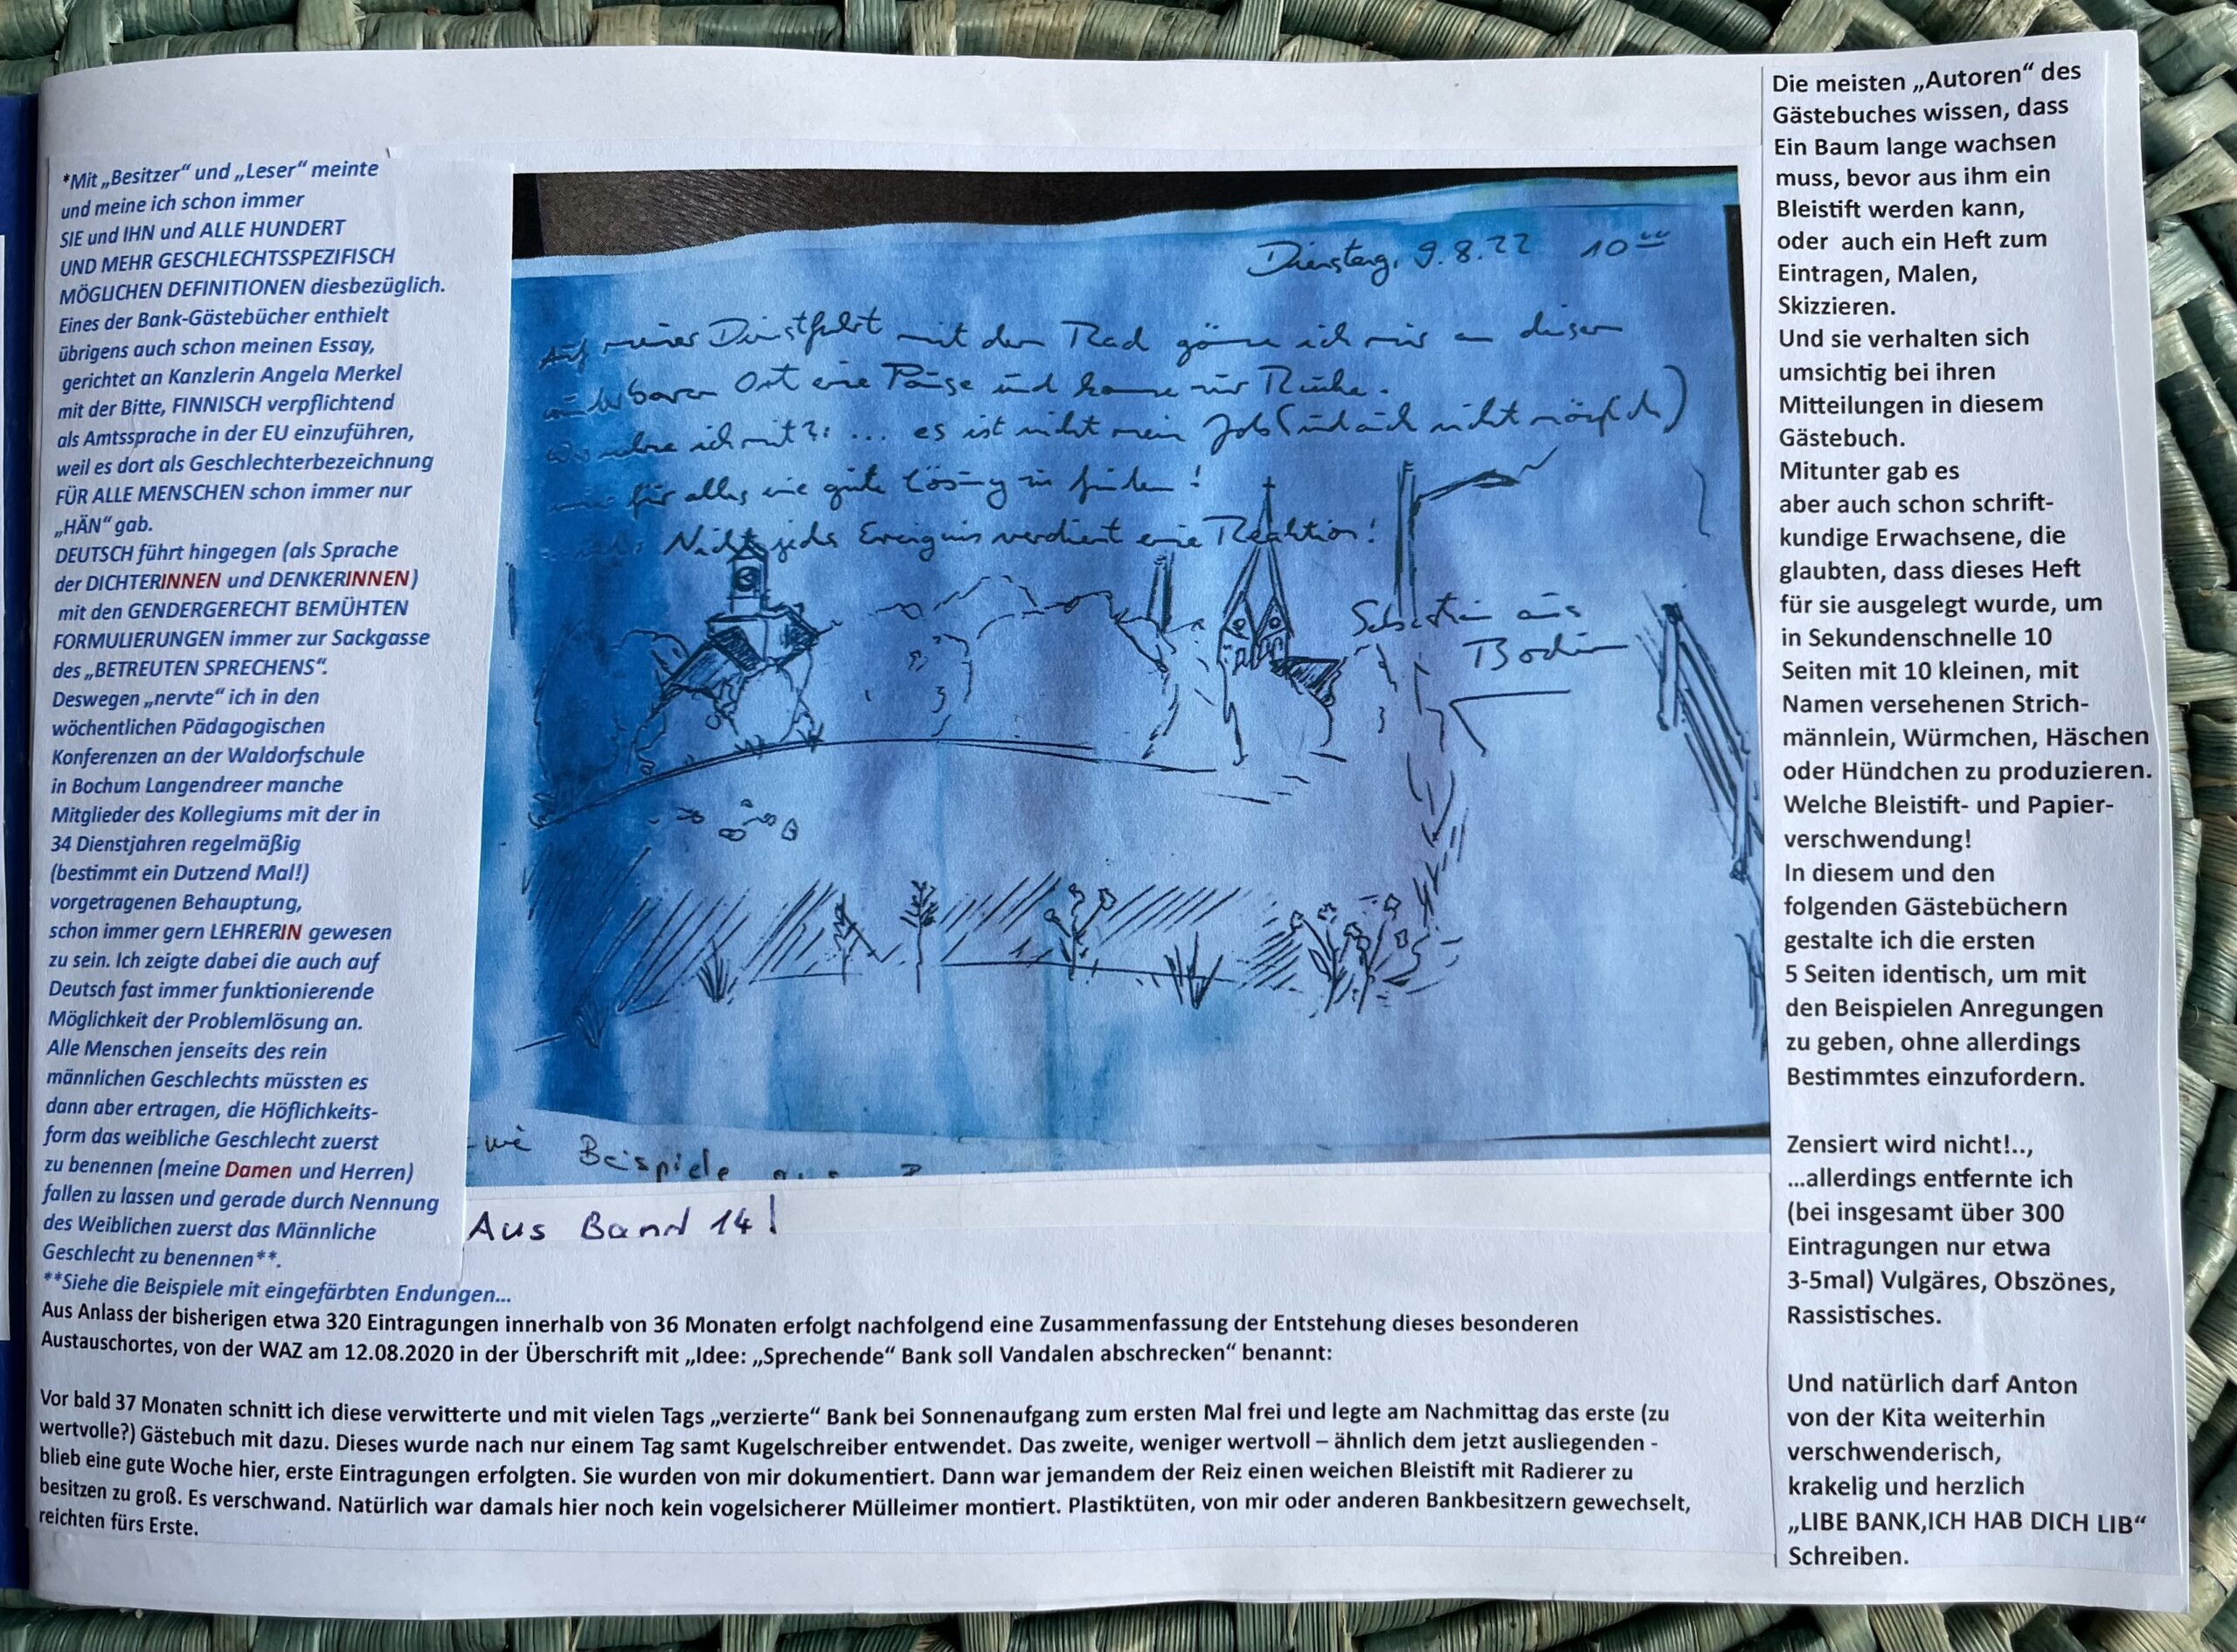 *Mit „Besitzer“ und „Leser“ meinte
und meine ich schon immer
SIE und IHN und ALLE HUNDERT
UND MEHR GESCHLECHTSSPEZIFISCH
MÖGLICHEN DEFINITIONEN diesbezüglich.
Eines der Bank-Gästebücher enthielt
übrigens auch schon meinen Essay,
gerichtet an Kanzlerin Angela Merkel
mit der Bitte, FINNISCH verpflichtend
als Amtssprache in der EU einzuführen,
weil es dort als Geschlechterbezeichnung
FÜR ALLE MENSCHEN schon immer nur
„HÄN“ gab.
DEUTSCH führt hingegen (als Sprache
der DICHTERINNEN und DENKERINNEN)
mit den GENDERGERECHT BEMÜHTEN
FORMULIERUNGEN immer zur Sackgasse
des „BETREUTEN SPRECHENS“.
Deswegen „nervte“ ich in den
wöchentlichen Pädagogischen
Konferenzen an der Waldorfschule
in Bochum Langendreer manche
Mitglieder des Kollegiums mit der in
34 Dienstjahren regelmäßig
(bestimmt ein Dutzend Mal!)
vorgetragenen Behauptung,
schon immer gern LEHRERIN gewesen
zu sein. Ich zeigte dabei die auch auf
Deutsch fast immer funktionierende
Möglichkeit der Problemlösung an.
Alle Menschen jenseits des rein
männlichen Geschlechts müssten es
dann aber ertragen, die Höflichkeits-
form das weibliche Geschlecht zuerst
zu benennen (meine Damen und Herren)
fallen zu lassen und gerade durch Nennung
des Weiblichen zuerst das Männliche
Geschlecht zu benennen**.
**Siehe die Beispiele mit eingefärbten Endungen...
Dienstag, 9.8.22 10⁰⁰
Auf meiner Dienstfahrt mit dem Rad gönne ich mir an diesem
wunderbaren Ort eine Pause und komme zur Ruhe.
ich mit?: ... es ist nicht mein Job (und auch nicht möglich)
für alles eine gute Lösung zu finden!
Nicht jedes Ereignis verdient eine Reaktion!
Sebastian aus
Bochum
Beispiele aus
Aus Band 14!
Aus Anlass der bisherigen etwa 320 Eintragungen innerhalb von 36 Monaten erfolgt nachfolgend eine Zusammenfassung der Entstehung dieses besonderen
Austauschortes, von der WAZ am 12.08.2020 in der Überschrift mit „Idee: „Sprechende“ Bank soll Vandalen abschrecken“ benannt:
Vor bald 37 Monaten schnitt ich diese verwitterte und mit vielen Tags „verzierte“ Bank bei Sonnenaufgang zum ersten Mal frei und legte am Nachmittag das erste (zu
wertvolle?) Gästebuch mit dazu. Dieses wurde nach nur einem Tag samt Kugelschreiber entwendet. Das zweite, weniger wertvoll – ähnlich dem jetzt ausliegenden -
blieb eine gute Woche hier, erste Eintragungen erfolgten. Sie wurden von mir dokumentiert. Dann war jemandem der Reiz einen weichen Bleistift mit Radierer zu
besitzen zu groß. Es verschwand. Natürlich war damals hier noch kein vogelsicherer Mülleimer montiert. Plastiktüten, von mir oder anderen Bankbesitzern gewechselt,
reichten fürs Erste.
Die meisten „Autoren“ des
Gästebuches wissen, dass
Ein Baum lange wachsen
muss, bevor aus ihm ein
Bleistift werden kann,
oder auch ein Heft zum
Eintragen, Malen,
Skizzieren.
Und sie verhalten sich
umsichtig bei ihren
Mitteilungen in diesem
Gästebuch.
Mitunter gab es
aber auch schon schrift-
kundige Erwachsene, die
glaubten, dass dieses Heft
für sie ausgelegt wurde, um
in Sekundenschnelle 10
Seiten mit 10 kleinen, mit
Namen versehenen Strich-
männlein, Würmchen, Häschen
oder Hündchen zu produzieren.
Welche Bleistift- und Papier-
verschwendung!
In diesem und den
folgenden Gästebüchern
gestalte ich die ersten
5 Seiten identisch, um mit
den Beispielen Anregungen
zu geben, ohne allerdings
Bestimmtes einzufordern.
Zensiert wird nicht!..,
...allerdings entfernte ich
(bei insgesamt über 300
Eintragungen nur etwa
3-5mal) Vulgäres, Obszönes,
Rassistisches.
Und natürlich darf Anton
von der Kita weiterhin
verschwenderisch,
krakelig und herzlich
„LIBE BANK,ICH HAB DICH LIB“
Schreiben.